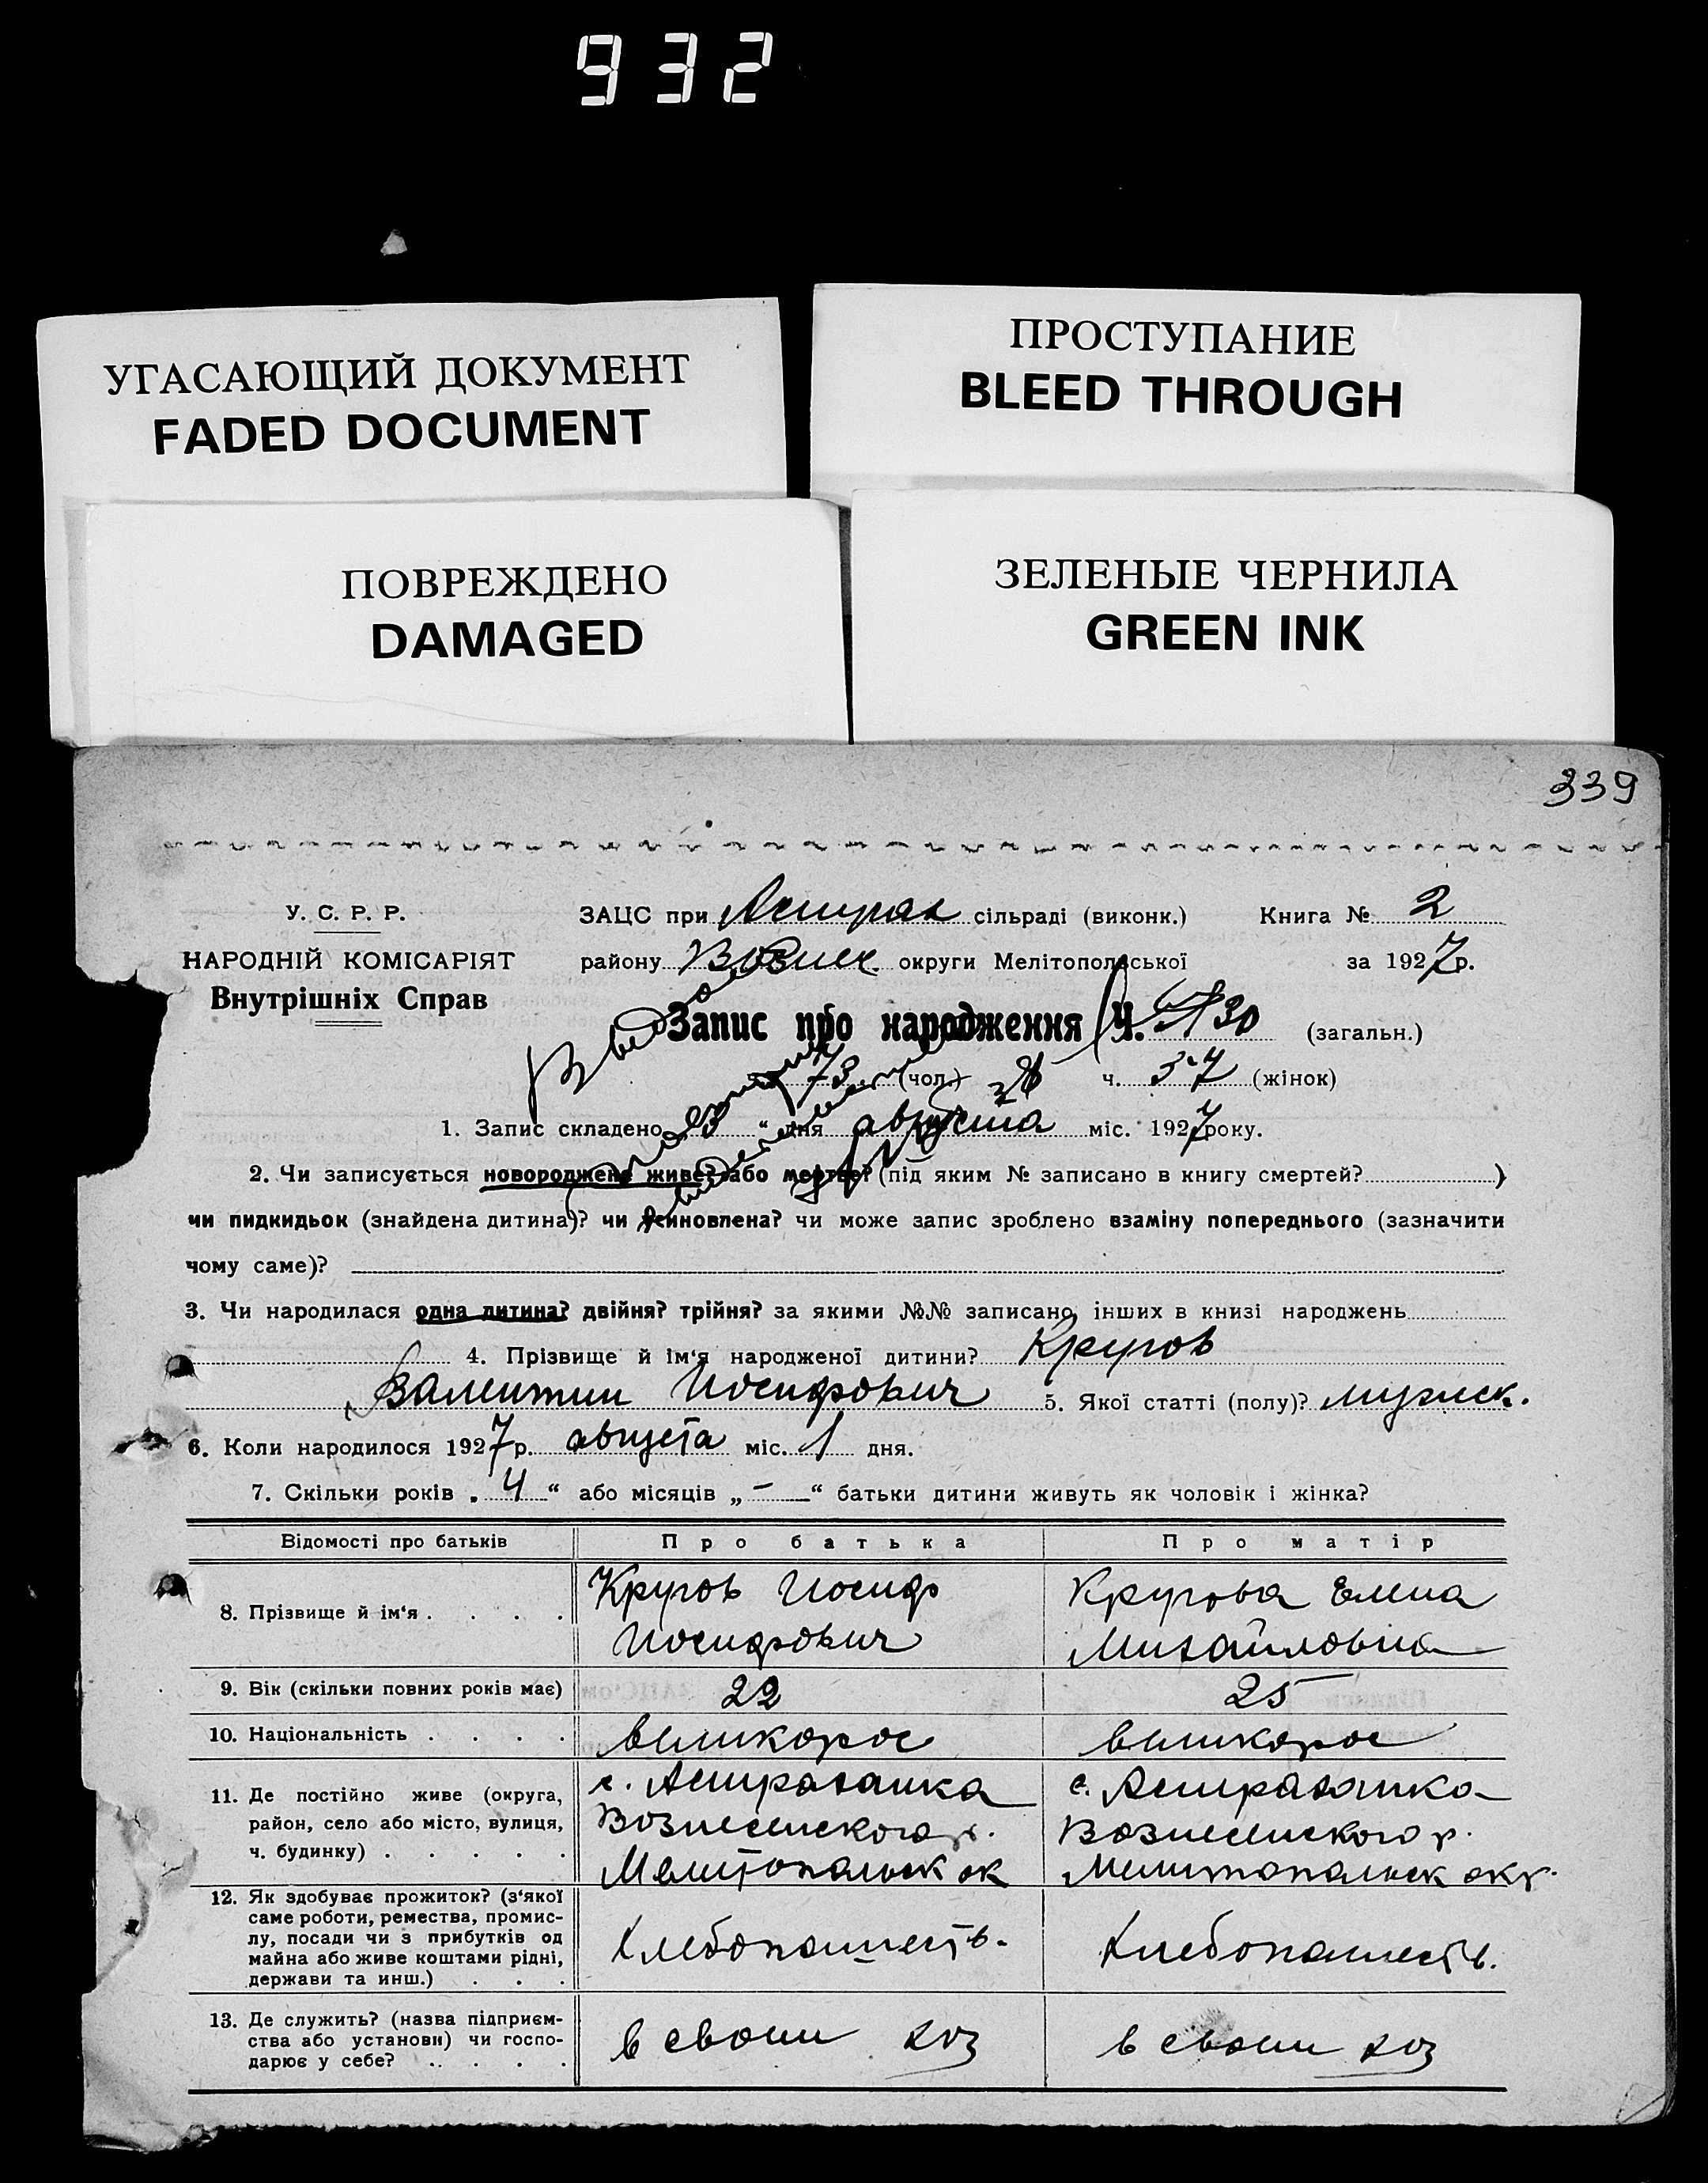 932
УГАСАЮЩИЙ ДОКУМЕНТ
FADED DOCUMENT
ПРОСТУПАНИЕ
BLEED THROUGH
ПОВРЕЖДЕНО
DAMAGED
ЗЕЛЕНЫЕ ЧЕРНИЛА
GREEN INK
339
У. С. Р. Р.
НАРОДНІЙ КОМІСАРІЯТ
Внутрішніх Справ
ЗАЦС при Астрах сільраді (виконк.) Книга № 2
району Вознес. округи Мелітопольської за 1927р.
Запис про народження Ч. 130 (загальн.)
73 (чол.) ч. 57 (жінок)
1. Запис складено „ 3 “ дня августа міс. 1927року.
2. Чи записується новороджене живе? або мертве? (під яким № записано в книгу смертей? )
чи пидкидьок (знайдена дитина)? чи усиновлена? чи може запис зроблено взаміну попереднього (зазначити
чому саме)?
3. Чи народилася одна дитина? двійня? трійня? за якими №№ записано інших в книзі народжень
4. Прізвище й ім'я народженої дитини? Кругов
Валентин Иосифович 5. Якої статті (полу)? мужск.
6. Коли народилося 1927р. августа міс. 1 дня.
7. Скільки років „ 4 “ або місяців „ – “ батьки дитини живуть як чоловік і жінка?
Відомості про батьків Про батька Про матір
8. Прізвище й ім'я . . . . Кругов Иосиф Иосифович Кругова Елена Михайловна
9. Вік (скільки повних років має) 22 25
10. Національність . . . . великорос великорос
11. Де постійно живе (округа,
район, село або місто, вулиця,
ч. будинку) . . . . .
с. Астраханка
Вознесенского р.
Мелитопольск ок
с. Астраханка
Вознесенского р.
Мелитопольск окр.
12. Як здобуває прожиток? (з'якої
саме роботи, ремества, промис-
лу, посади чи з прибутків од
майна або живе коштами рідні,
держави та инш.) . . .
Хлебопашеств. Хлебопашеств.
13. Де служить? (назва підприєм-
ства або установи) чи госпо-
дарює у себе? . . . . .
в своем хоз в своем хоз